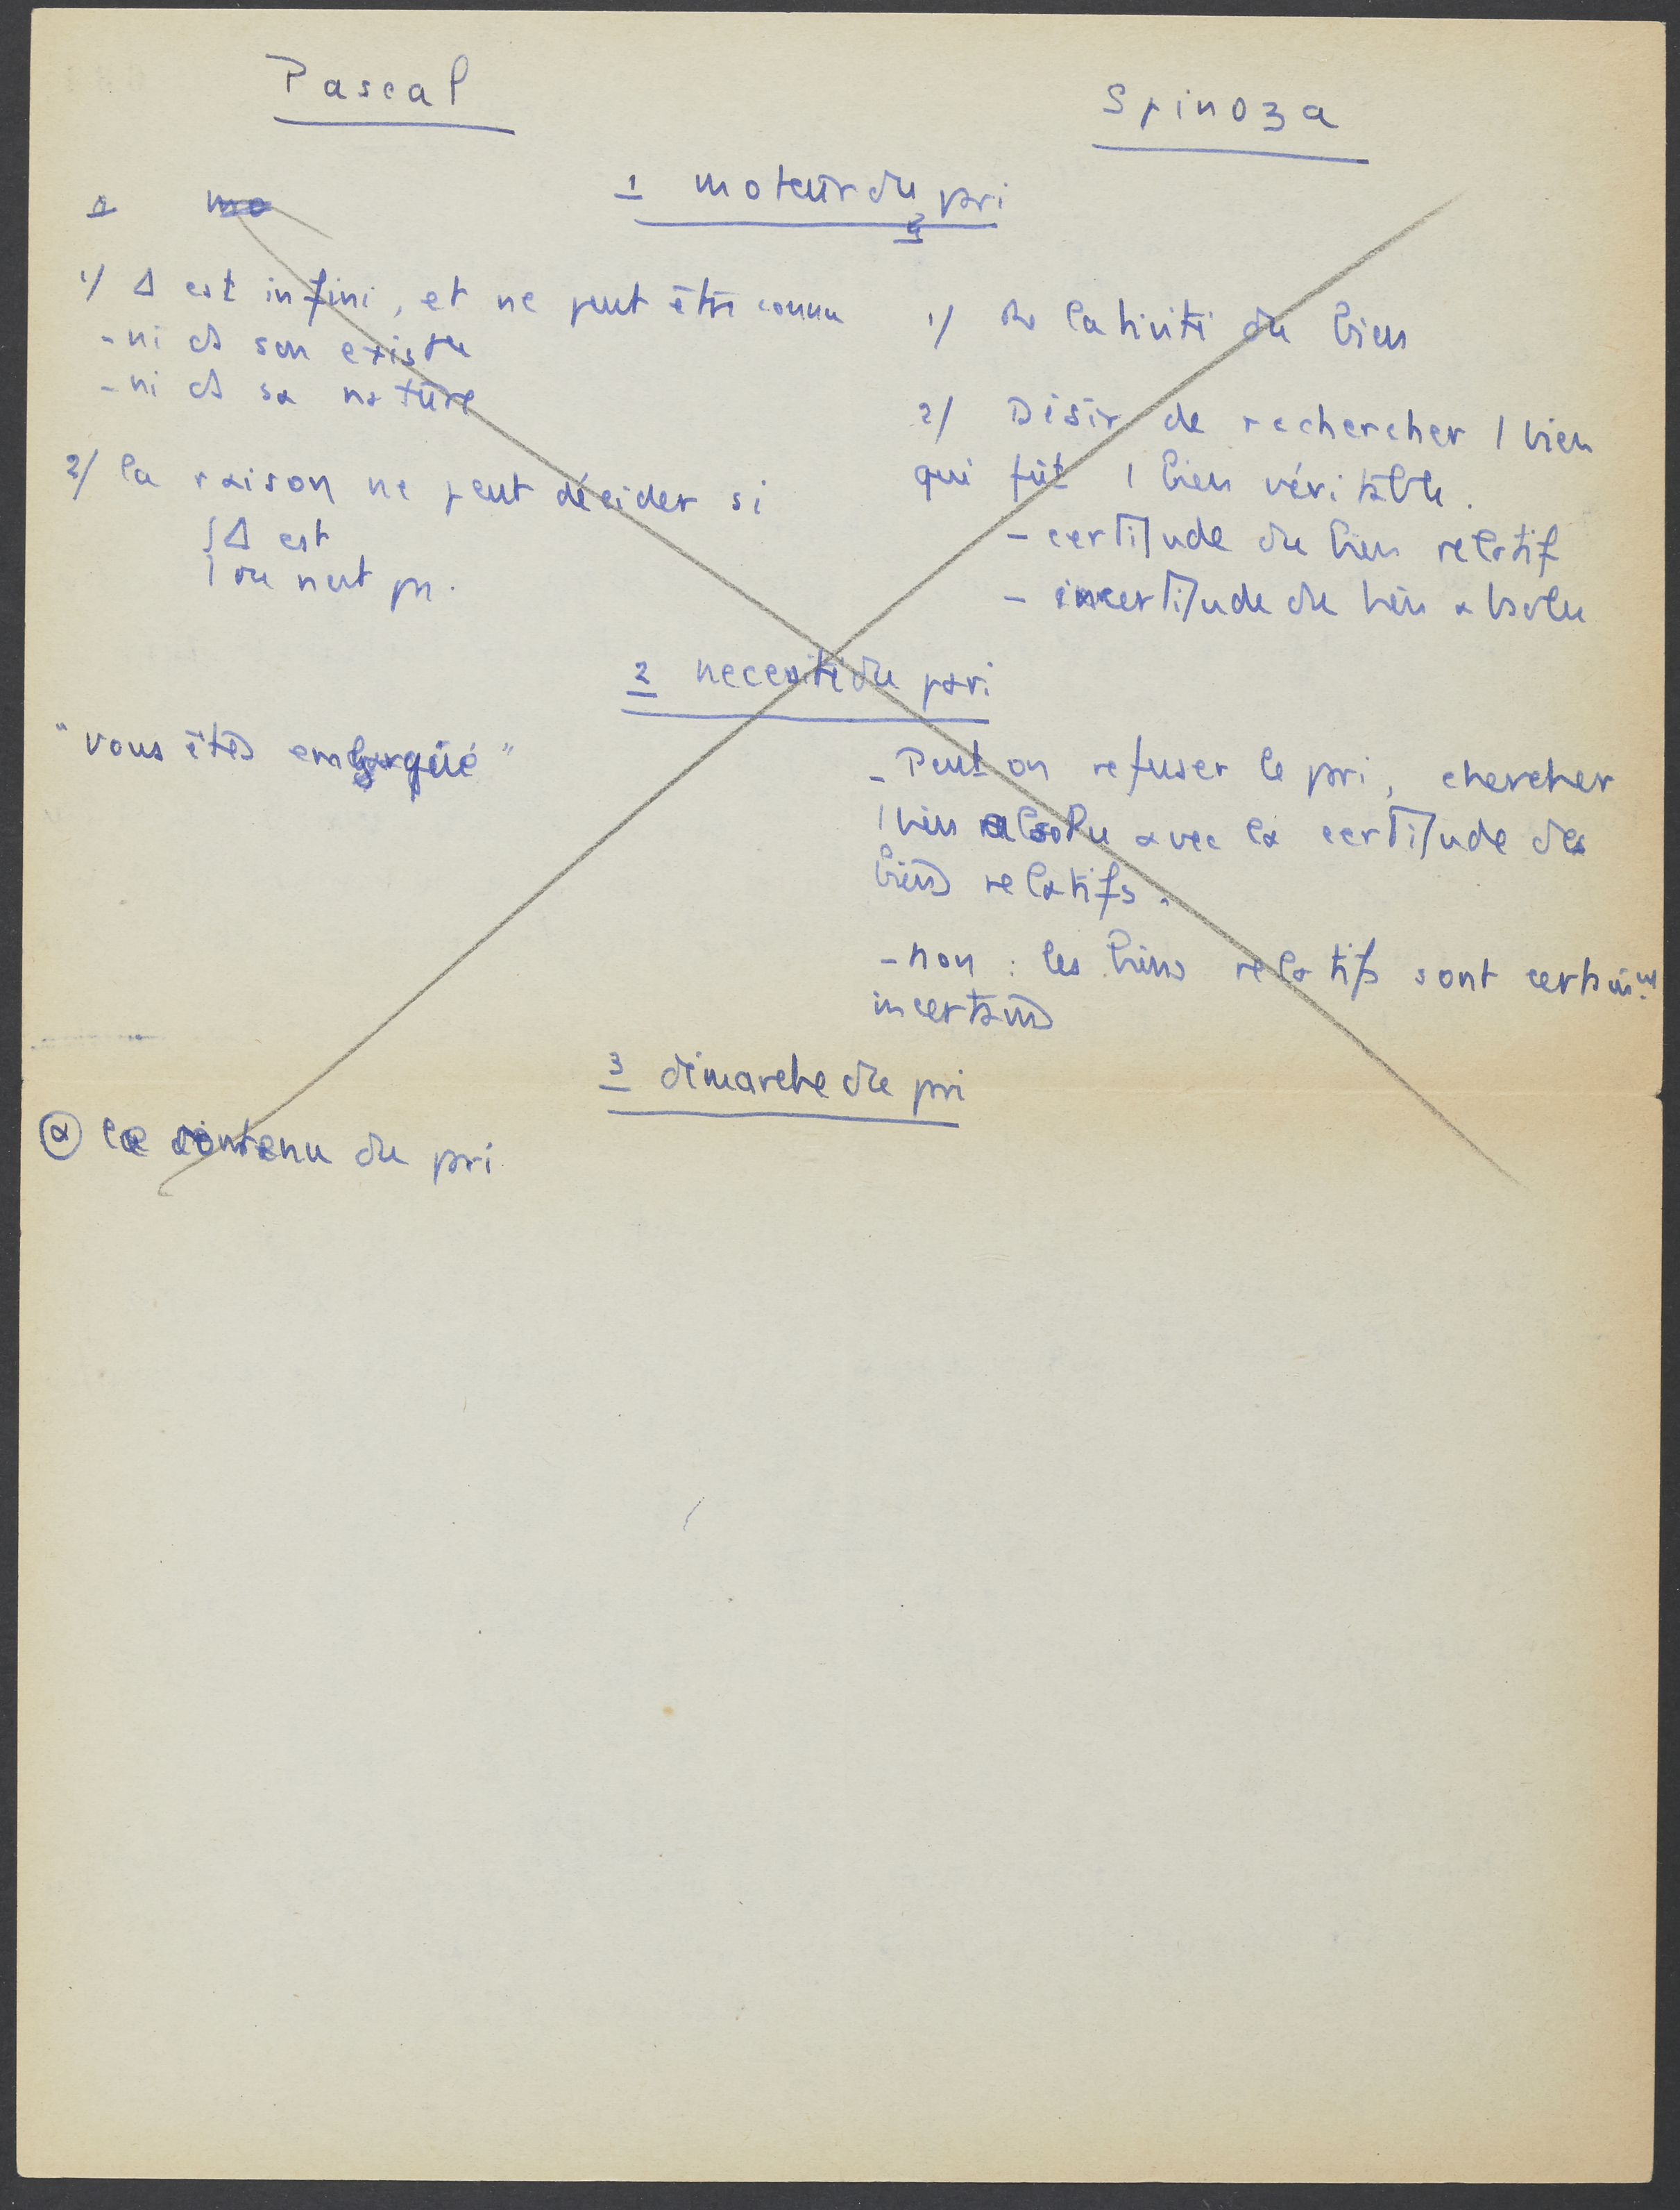 Pascal
Spinoza
1 moteur du pari
1 mo
1/ Δ est infini, et ne peut être connu
- ni ds son existce
- ni ds sa nature
2/ la raison ne peut décider si
Δ est
ou n'est pas.
1/ Relativité du bien
2/ Désir de rechercher 1 bien
qui fût 1 bien véritable.
- certitude du bien relatif
- incertitude du bien absolu
2 necessité du pari
"vous êtes embarqué"
- Peut on refuser le pari, chercher
1 bien absolu avec la certitude des
biens relatifs.
- non : les biens relatifs sont certainemt
incertains
3 démarche du pari
ⓐ le contenu du pari